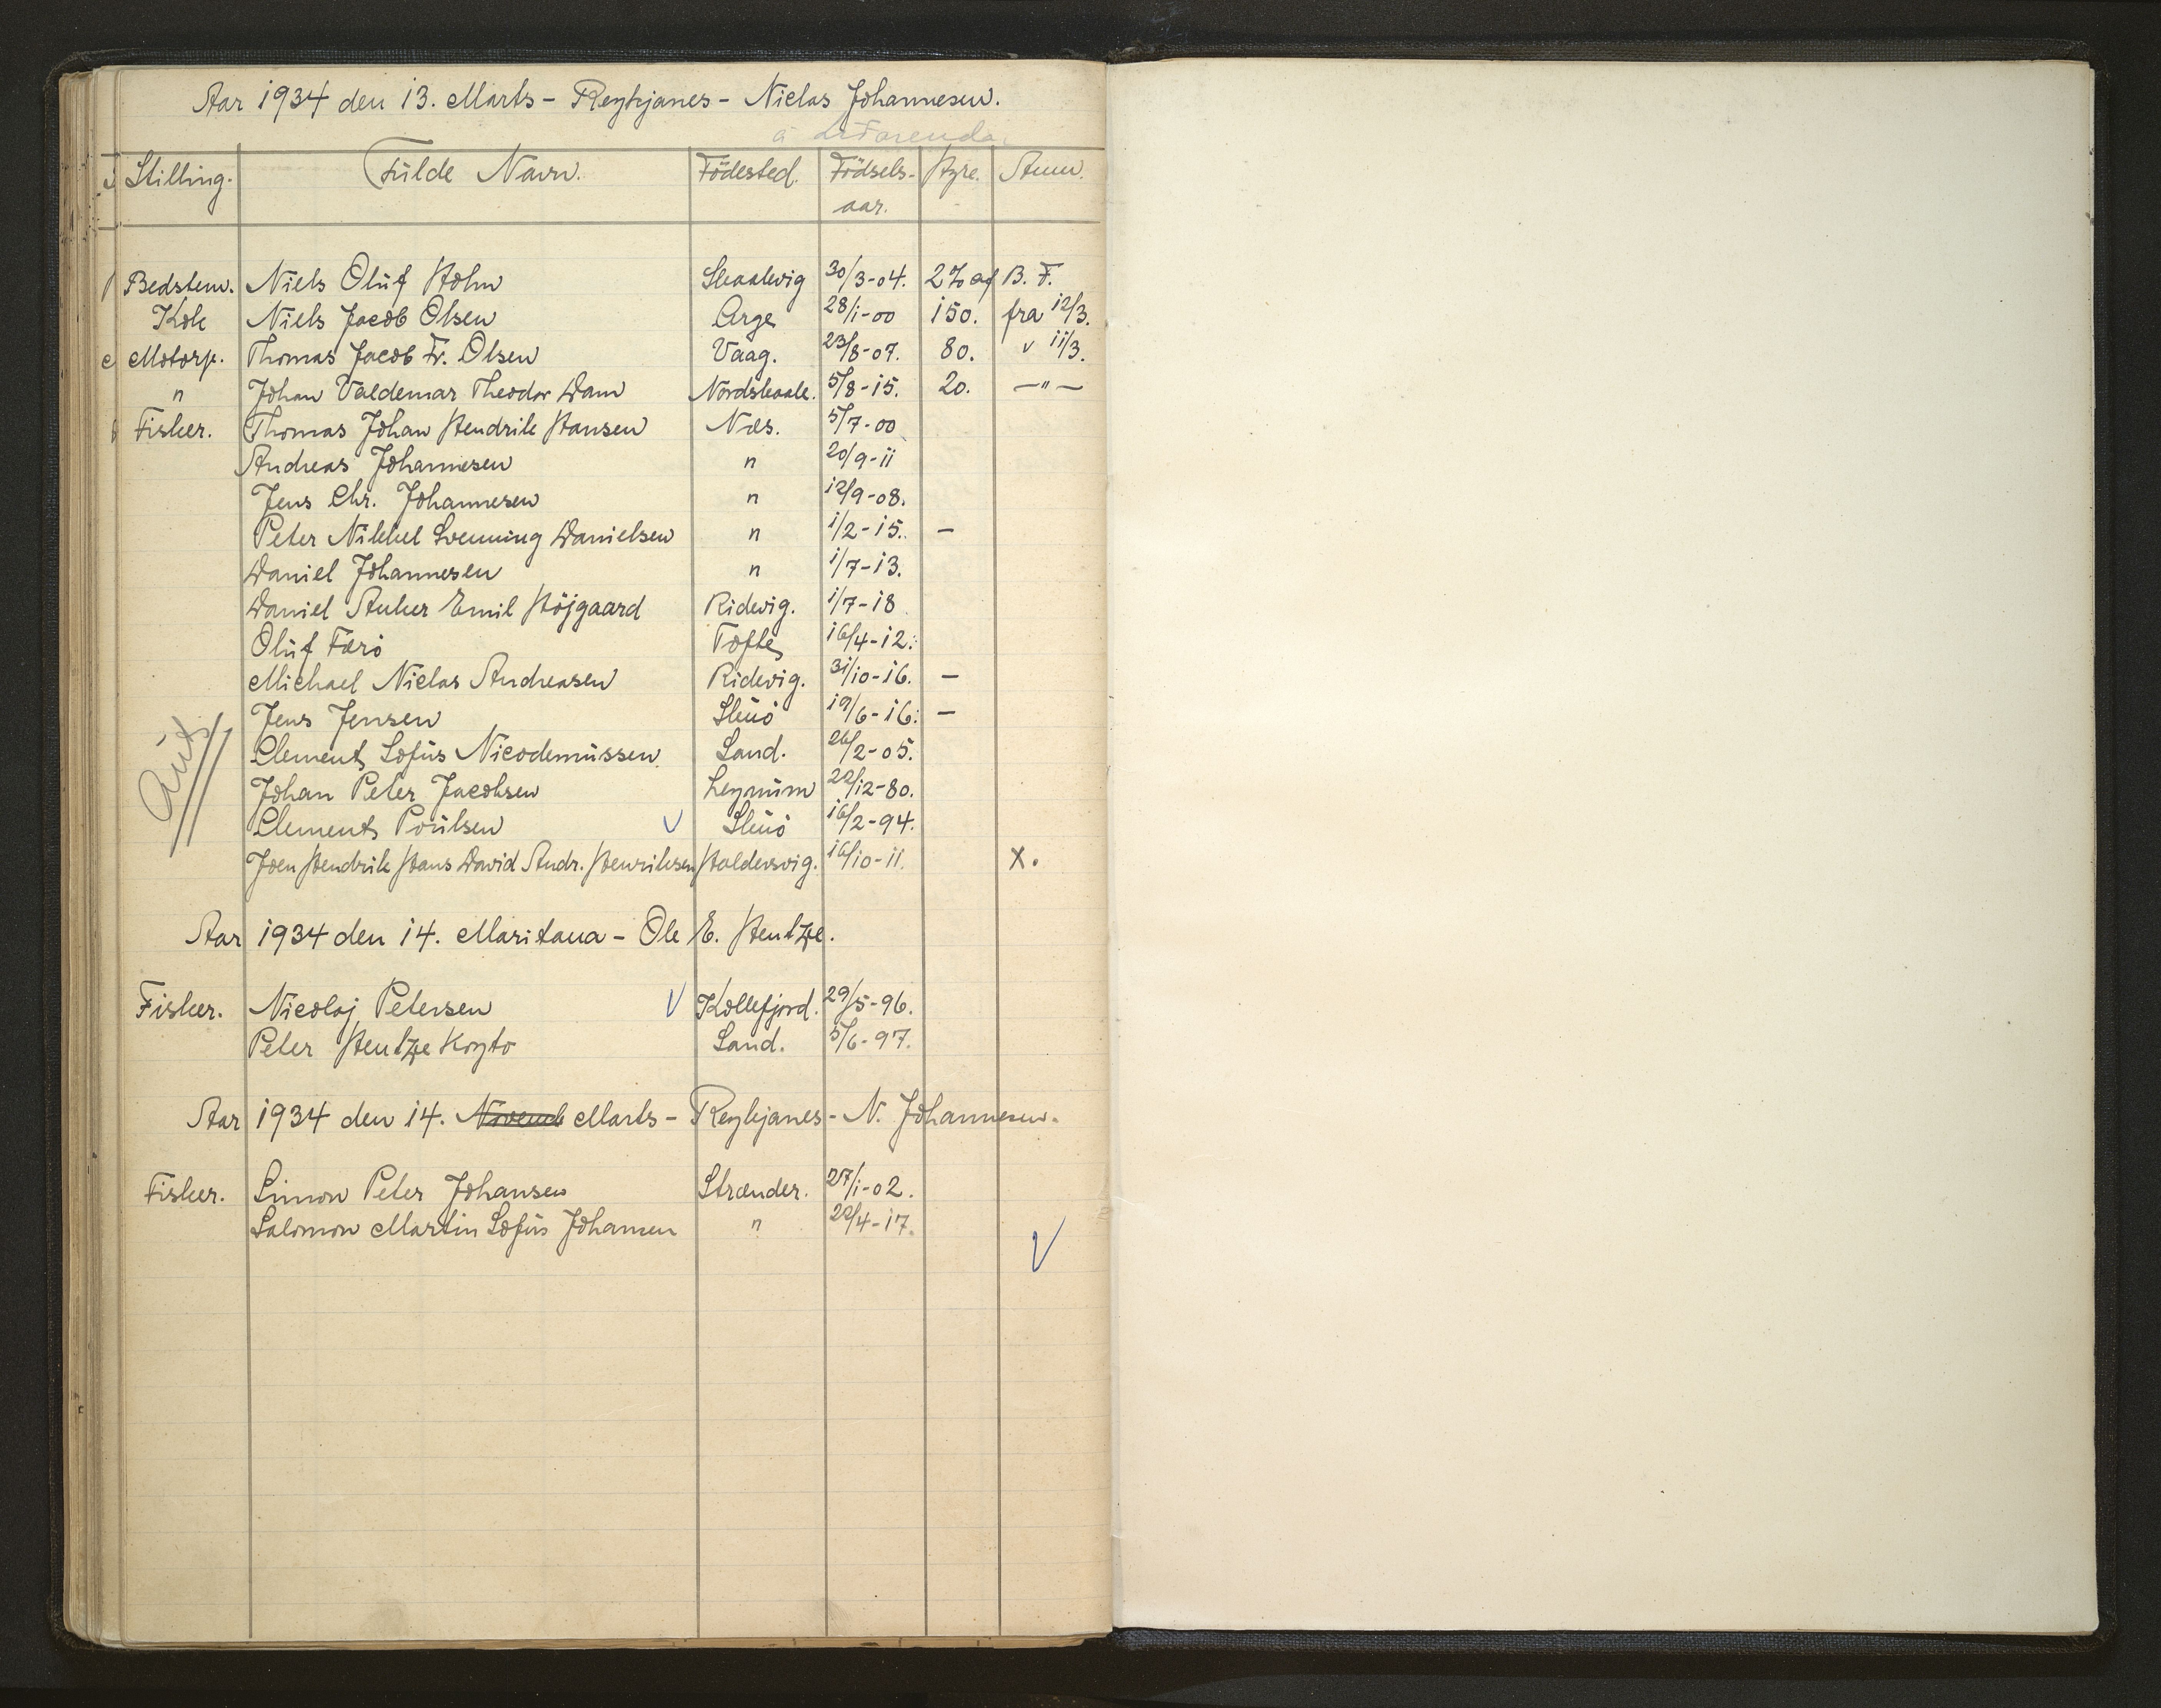 Aar 1934 den 13. Marts - Reykjanes - Niclas Johannesen.
Stilling. Fulde Navn. Fødested. Fødsels- Hyre. Anm.
aar.
Bedstem. Niels Oluf Holm Skaalevig 30/3-04. 2% af B. F.
Kok Niels Jacob Olsen Arge 28/1-00 150. fra 12/3.
Motorp. Thomas Jacob Fr. Olsen Vaag. 23/8-07. 80. " 11/3.
" Johan Valdemar Theodor Dam Nordskaale. 5/8-15. 20. —"—
Fisker. Thomas Johan Hendrik Hansen Næs. 5/7-00
Andreas Johannesen " 20/9-11
Jens Chr. Johannesen " 12/9-08.
Peter Nikkel Svenning Danielsen " 1/2-15. —
Daniel Johannesen " 1/7-13.
Daniel Anker Emil Højgaard Ridevig. 1/7-18
Oluf Færö Tofte 16/4-12.
Michael Niclas Andreasen Ridevig. 31/10-16. —
Jens Jensen Skuö 19/6-16. —
Clement Sofus Nicodemussen Sand. 26/2-05.
Johan Peter Jacobsen Leynum 22/12-80.
Clement Poulsen V Skuö 16/2-94.
Joen Hendrik Hans David Andr. Henriksen Haldersvig. 16/10-11. X.
Aar 1934 den 14. Maritana - Ole E. Hentze.
Fisker. Nicolaj Petersen V Kollefjord. 29/5-96.
Peter Hentze Koyto Sand. 5/6-97.
Aar 1934 den 14. Novemb Marts - Reykjanes - N. Johannesen.
Fisker. Simon Peter Johansen Strænder. 27/1-02.
Salomon Martin Sofus Johansen " 22/4-17.
V